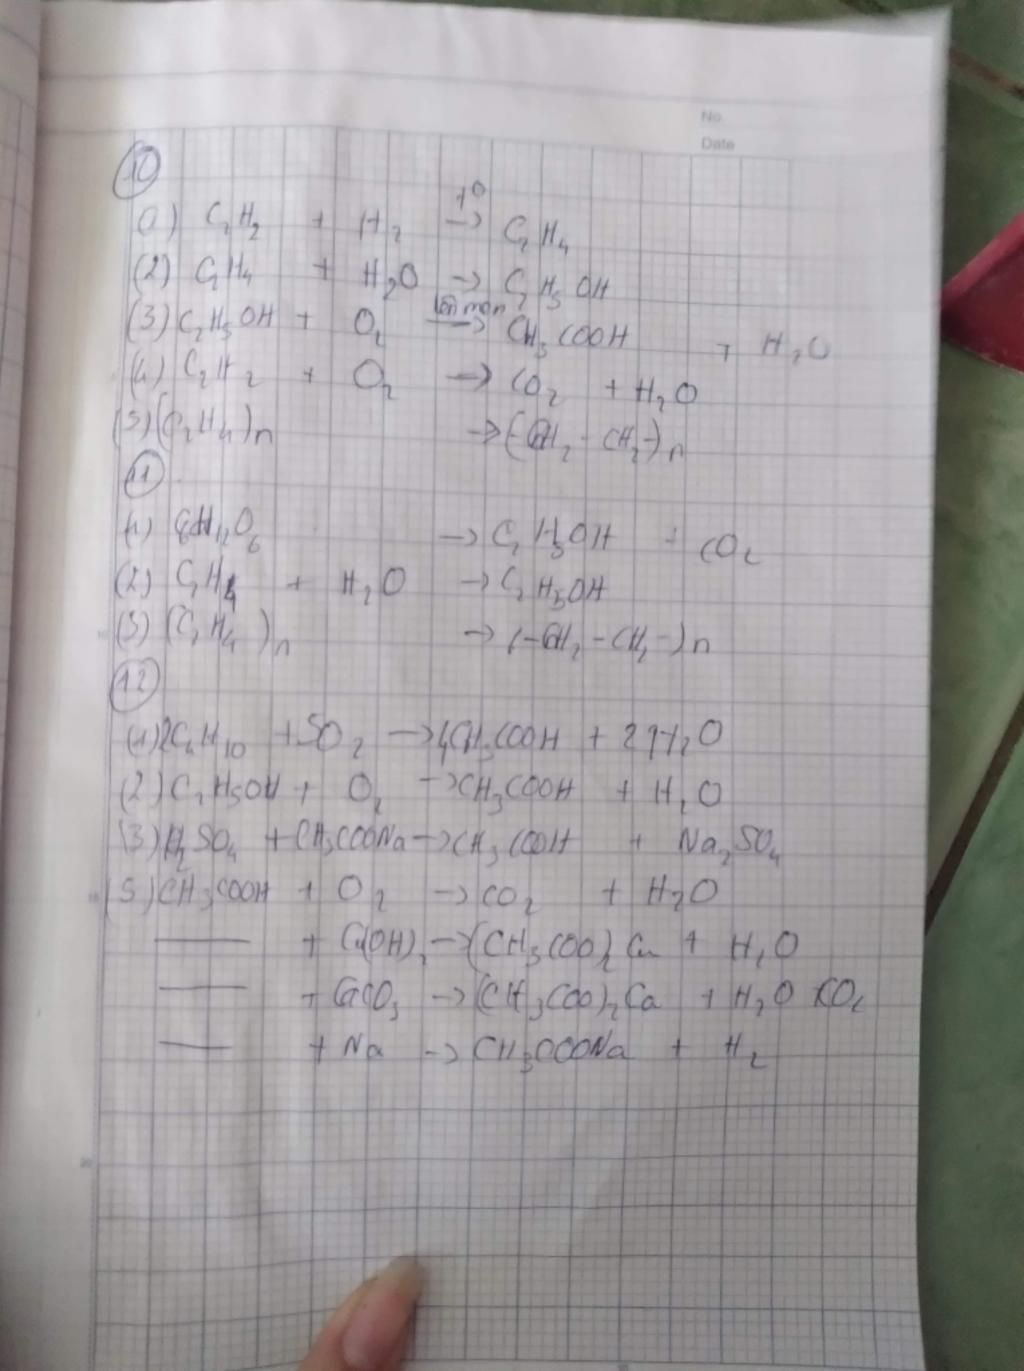 No.
Date
10
(1) C2H2 + H2 t° → C2H4
(2) C2H4 + H2O → C2H5OH
(3) C2H5OH + O2 lên men → CH3COOH + H2O
(4) C2H2 + O2 → CO2 + H2O
(5) (C2H4)n → (-CH2-CH2-)n
11
(1) C6H12O6 → C2H5OH + CO2
(2) C2H4 + H2O → C2H5OH
(5) (C2H4)n → (-CH2-CH2-)n
12
(1) 2C4H10 + 5O2 → 4CH3COOH + 2H2O
(2) C2H5OH + O2 → CH3COOH + H2O
(3) H2SO4 + CH3COONa → CH3COOH + Na2SO4
(5) CH3COOH + O2 → CO2 + H2O
—— + Cu(OH)2 → (CH3COO)2Cu + H2O
—— + CaCO3 → (CH3COO)2Ca + H2O + CO2
—— + Na → CH3COONa + H2